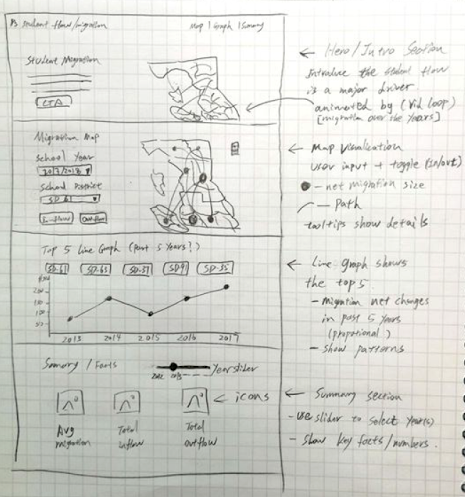 student flow/migration
Map | Graph | Summary
Student Migration
CTA
← Hero/Intro Section
Introduce the student flow
is a major driver
animated by (Vid loop)
[migration over the years]
Migration Map
School Year
2017/2018 ▼
School District
SD 61 ▼
Inflow
Outflow
← Map Visualization
user input + toggle (in/out)
— net migration size
— Path
tooltips show details
Top 5 Line Graph (Past 5 Years?)
SD-61
SD-63
SD-37
SD-91
SD-35
2013
2014
2015
2016
2017
← Line Graph shows
the top 5
- Migration net changes
in past 5 years
(propotional)
- show patterns
Summary / Facts
Year slider
← icons
Avg
migration
Total
inflow
Total
outflow
← Summary section
- use slider to select year(s)
- show key facts/numbers.